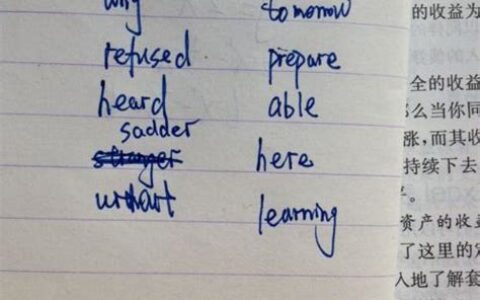 why tomorrow
refused prepare
heard able
sadder
here
learning
的收益为
全的收益
么当你同
涨,而其收
持续下去
。
资产的收益
了这里的定
入地了解套